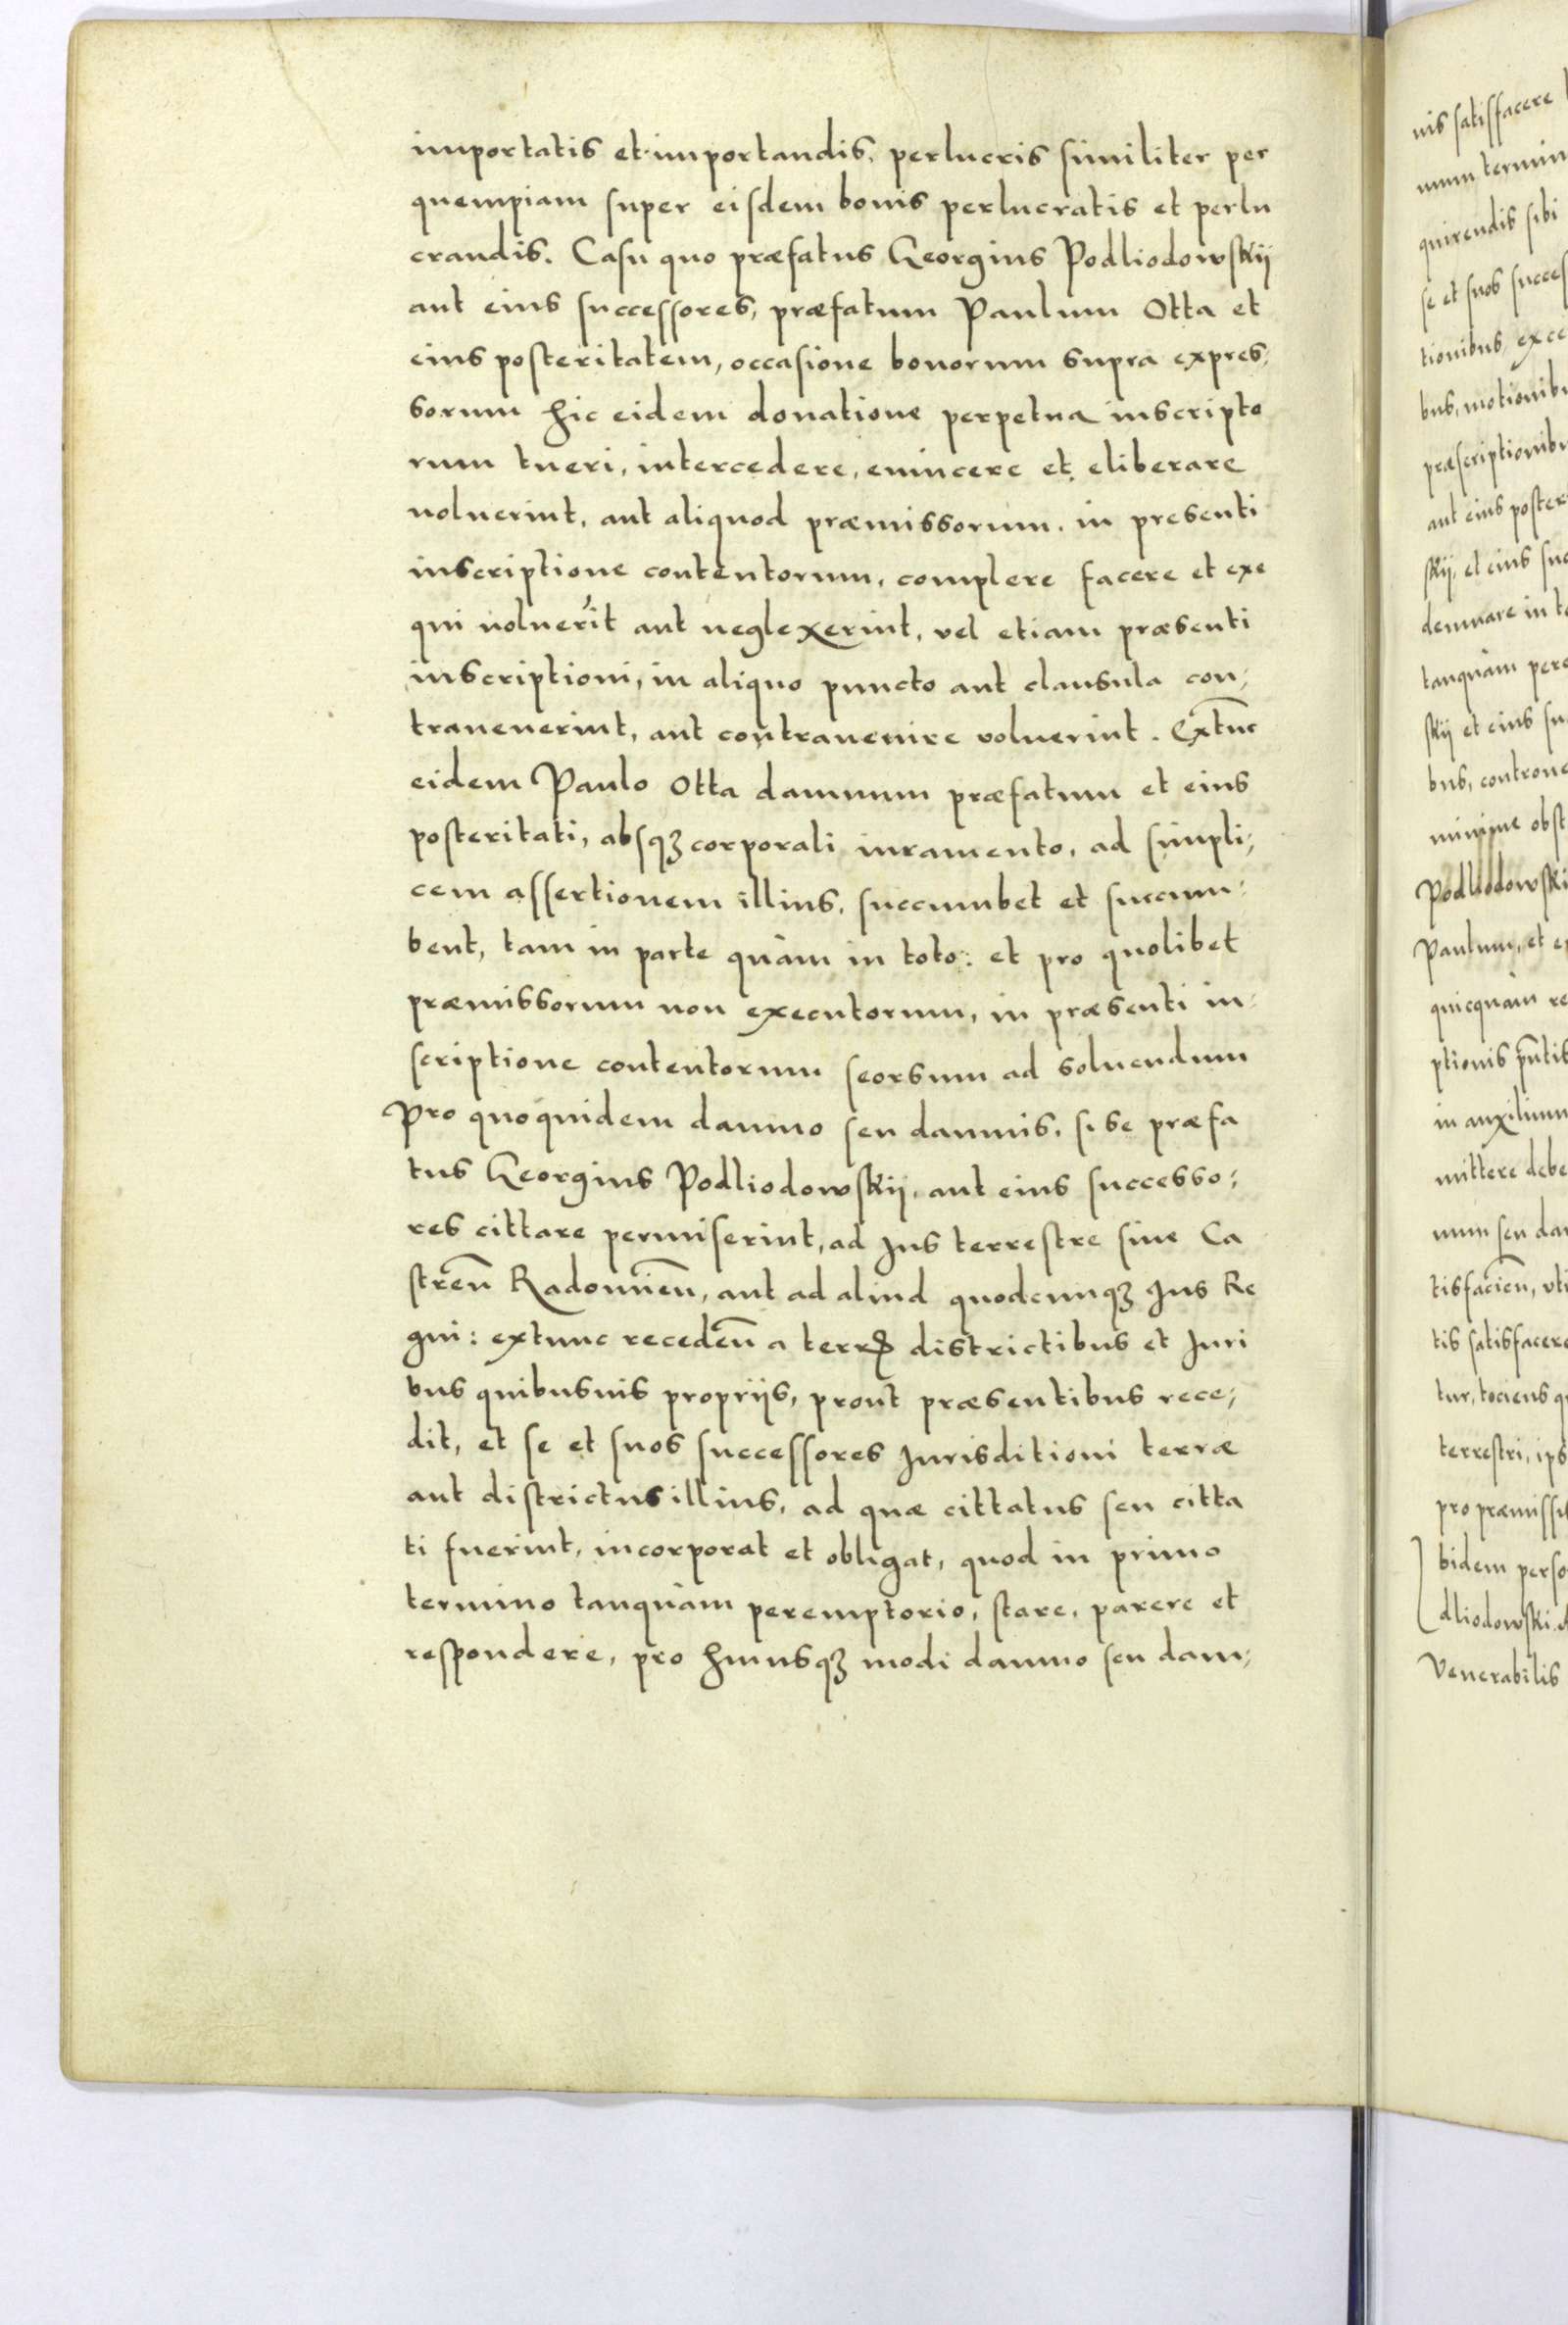 importatis et importandis, perlucris similiter per
quempiam super eisdem bonis perlucratis et perlu
crandis. Casu quo præfatus Georgius Podliodowskij
aut eius successores, præfatum Paulum Otta et
eius posteritatem, occasione bonorum supra expres,
sorum hic eidem donatione perpetua inscripto
rum tueri, intercedere, euincere et eliberare
noluerint, aut aliquod præmissorum, in presenti
inscriptione contentorum, complere facere et exe
qui noluerīt aut neglexerint, vel etiam præsenti
inscriptioni, in aliquo puncto aut clausula con,
trauenerint, aut contrauenire voluerint. Extūc
eidem Paulo Otta damnum præfatum et eius
posteritati, absqꝫ corporali iuramento, ad simpli,
cem assertionem illius, succumbet et succum,
bent, tam in parte quàm in toto: et pro quolibet
præmissorum non executorum, in præsenti in,
scriptione contentorum seorsum ad soluendum
Pro quoquidem damno seu damnis, si se præfa
tus Georgius Podliodowskij, aut eius successo,
res cittare permiserint, ad Ius terrestre siue Ca
streñ Radomieñ, aut ad aliud quodcunqꝫ Ius Re
gni: extunc recedeñ a terrꝝ districtibus et Iuri
bus quibusuis proprijs, prout præsentibus rece,
dit, et se et suos successores Iurisditioni terræ
aut districtus illius, ad quæ cittatus seu citta
ti fuerint, incorporat et obligat, quod in primo
termino tanquàm peremptorio, stare, parere et
respondere, pro huiusqꝫ modi damno seu dam,
nis satisfacere
num termin
quirendis sibi
se et suos succes
tionibus, exce
bus, motionibu
præscriptionibu
aut eius poster
skij, et eius suc
demnare in to
tanquàm pere
skij et eius su
bus, controue
minime obst
Podliodowski
Paulum, et e
quicquàm re
ptionis pñtib
in auxilium
mittere debe
num seu da
tisfacieñ, vti
tis satisfacere
tur, tociens q
terrestri, ips
pro præmissi
bidem perso
dliodowski
Venerabilis